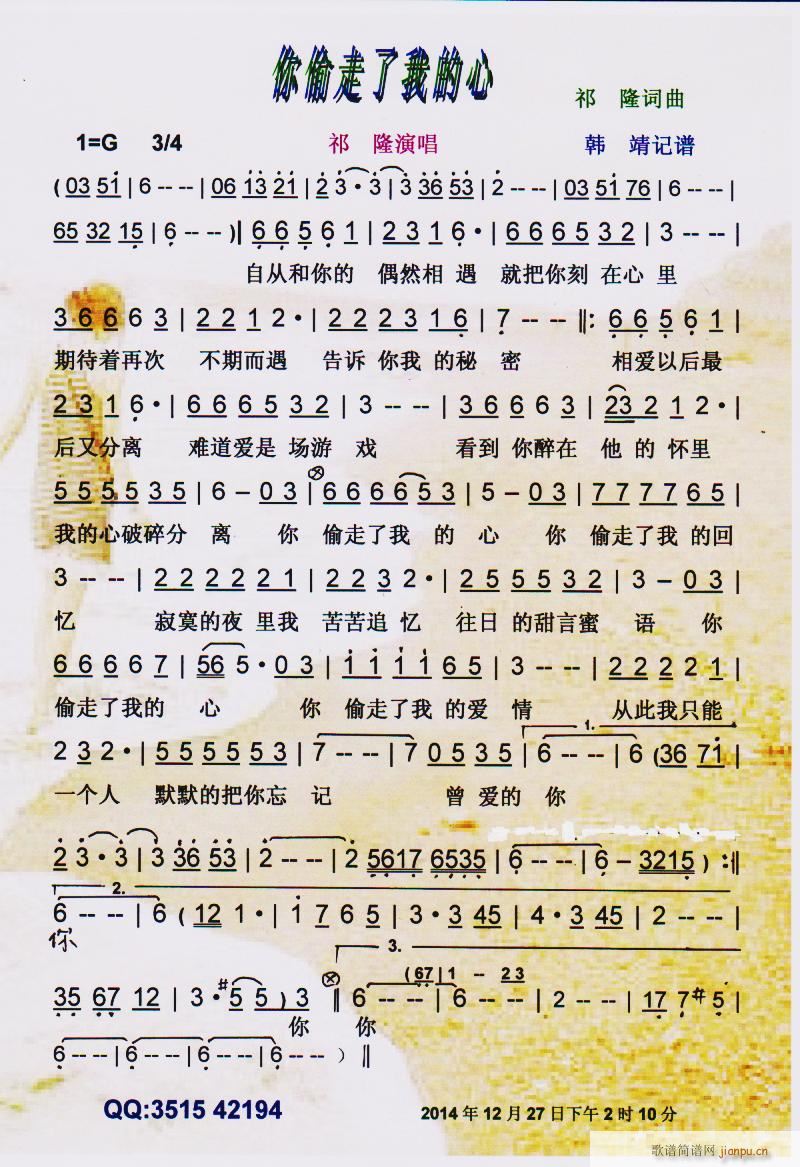 你偷走了我的心
祁 隆词曲
1=G 3/4 祁 隆演唱 韩 靖记谱
( 03 51 | 6 - - - | 06 13 21 | 2 3 · 3 | 3 36 53 | 2 - - - | 03 51 76 | 6 - - - |
65 32 15 | 6 - - - ) | 6 6 5 6 1 | 2 3 1 6 · | 6 6 6 5 3 2 | 3 - - - |
自从和你的 偶然相 遇 就把你刻 在心 里
3 6 6 6 3 | 2 2 1 2 · | 2 2 2 3 1 6 | 7 - - - ‖: 6 6 5 6 1 |
期待着再次 不期而遇 告诉 你我 的秘 密 相爱以后最
2 3 1 6 · | 6 6 6 5 3 2 | 3 - - - | 3 6 6 6 3 | 23 2 1 2 · |
后又分离 难道爱是 场游 戏 看到 你醉在 他 的 怀里
5 5 5 5 3 5 | 6 – 0 3 | 6 6 6 6 5 3 | 5 – 0 3 | 7 7 7 7 6 5 |
我的心破碎分 离 你 偷走了我 的 心 你 偷走了我 的回
3 - - - | 2 2 2 2 2 1 | 2 2 3 2 · | 2 5 5 5 3 2 | 3 – 0 3 |
忆 寂寞的夜 里我 苦苦追 忆 往日 的甜言蜜 语 你
6 6 6 6 7 | 56 5 · 0 3 | 1 1 1 1 6 5 | 3 - - - | 2 2 2 2 1 |
偷走了我的 心 你 偷走了我 的爱 情 从此我只能
1.
2 3 2 · | 5 5 5 5 5 3 | 7 - - - | 7 0 5 3 5 | 6 - - - | 6 (36 71 |
一个人 默默的把你忘 记 曾 爱的 你
2 3 · 3 | 3 36 53 | 2 - - - | 2 5617 6535 | 6 - - - | 6 – 3215 ) :‖
2.
6 - - - | 6 ( 12 1 · | 1 7 6 5 | 3 · 3 45 | 4 · 3 45 | 2 - - - |
你
3.
( 67 | 1 -- 2 3
35 67 12 | 3 · #5 5 ) 3 ‖ 6 - - - | 6 - - - | 2 - - - | 17 7 #5 |
你 你
6 - - - | 6 - - - | 6 - - - | 6 - - - ) ‖
QQ:3515 42194
2014 年 12 月 27 日下午 2 时 10 分
歌谱简谱网 jianpu.cn